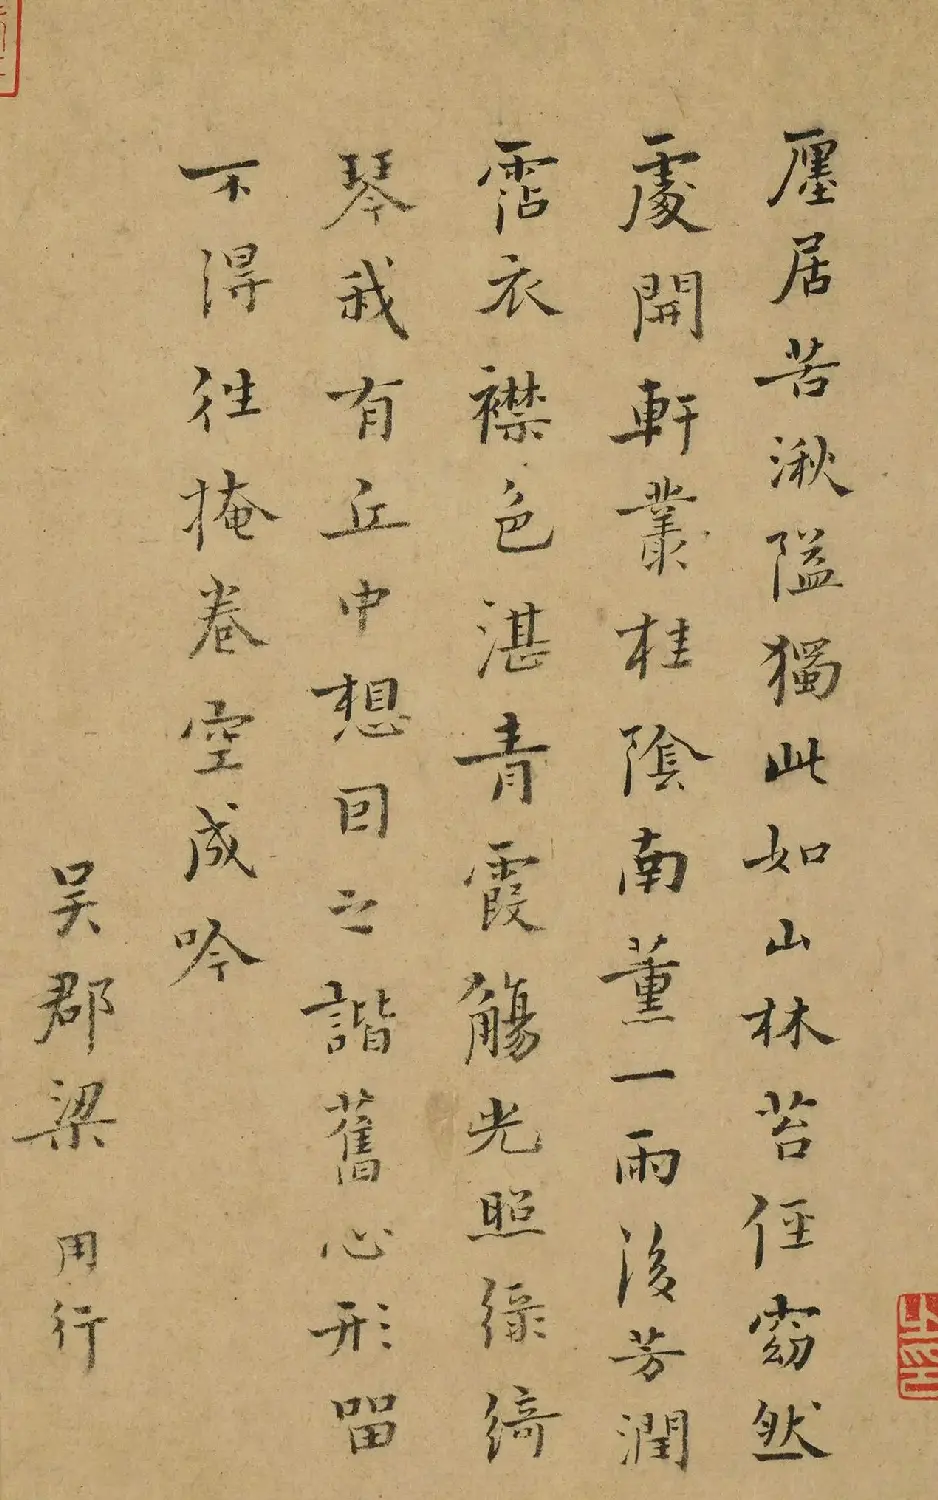 廛居苦湫隘獨此如山林苔徑窈然
處開軒叢桂陰南薰一雨後芳潤
霑衣襟色湛青霞觴光照綠綺
琴我有丘中想回之諧舊心形留
不得往掩卷空成吟
吳郡梁用行